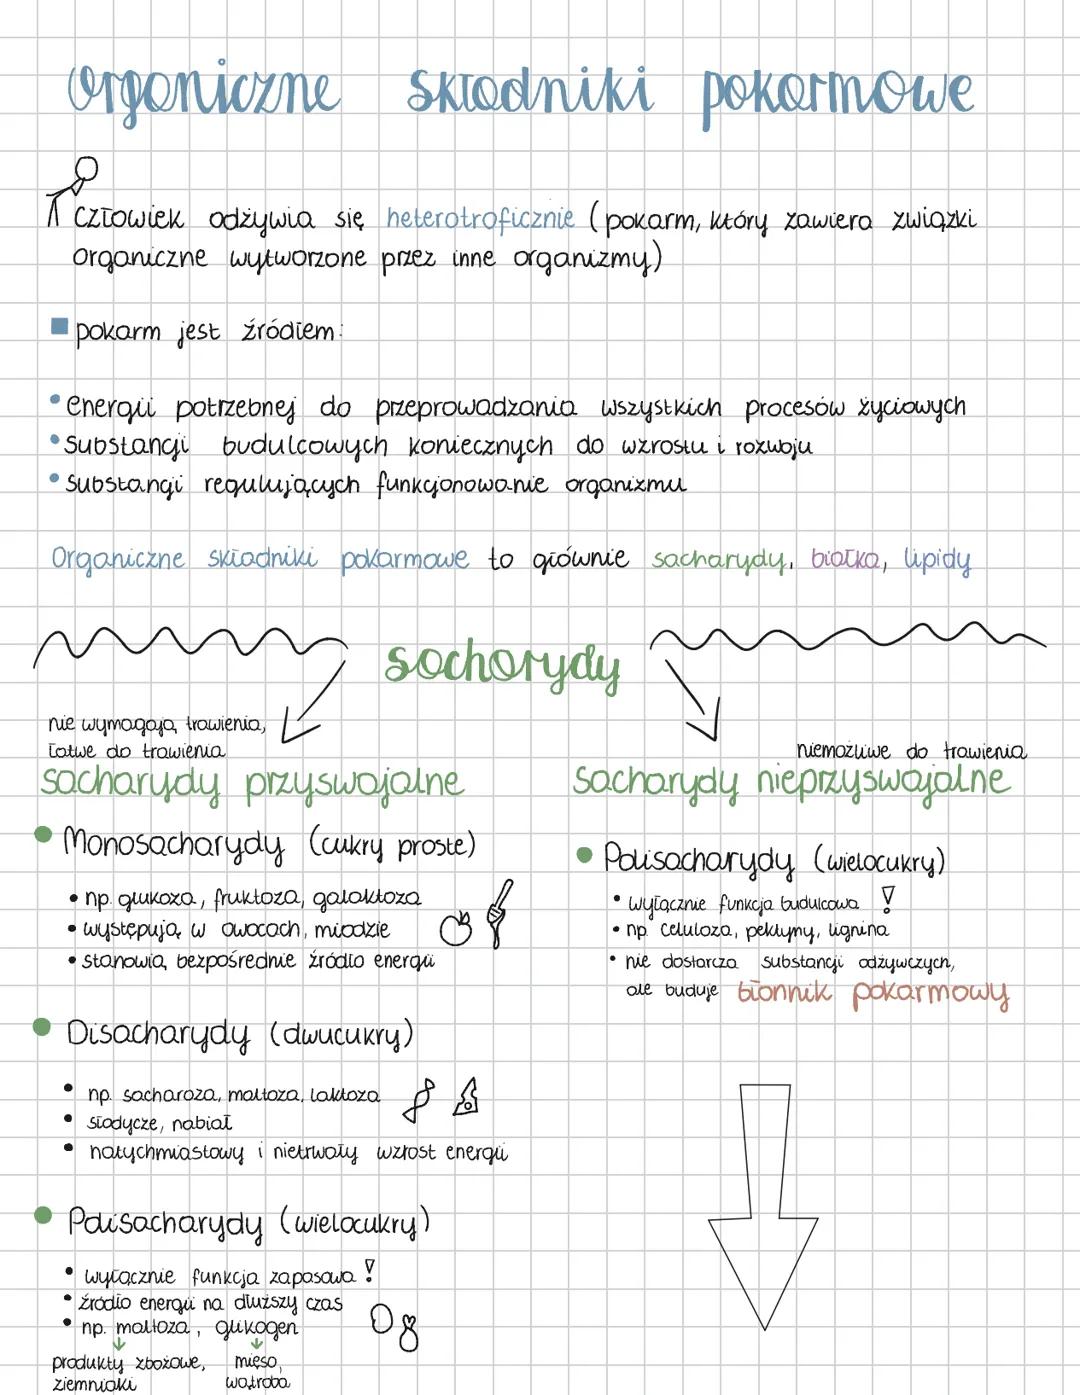 Organiczne składniki pokarmowe
Człowiek odżywia się heterotroficznie (pokarm, który zawiera związki
organiczne wytworzone przez inne organizmy)
pokarm jest źródłem:
• energii potrzebnej do przeprowadzania wszystkich procesów życiowych
• substancji budulcowych koniecznych do wzrostu i rozwoju
• substancji regulujących funkcjonowanie organizmu
Organiczne składniki pokarmowe to głównie sacharydy, białka, lipidy
sacharydy
nie wymagają trawienia,
łatwe do trawienia
sacharydy przyswajalne
• Monosacharydy (cukry proste)
• np. glukoza, fruktoza, galaktoza
• występują w owocach, miodzie
• stanowią bezpośrednie źródło energii
• Disacharydy (dwucukry)
• np. sacharoza, maltoza, laktoza
• słodycze, nabiał
• natychmiastowy i nietrwały wzrost energii
• Polisacharydy (wielocukry)
• wyłącznie funkcja zapasowa !
• źródło energii na dłuższy czas
• np. maltoza, glikogen
produkty zbożowe, mięso,
ziemniaki wątroba
niemożliwe do trawienia
sacharydy nieprzyswajalne
• Polisacharydy (wielocukry)
• wyłącznie funkcja budulcowa !
• np. celuloza, pektyny, lignina
• nie dostarcza substancji odżywczych,
ale buduje błonnik pokarmowy